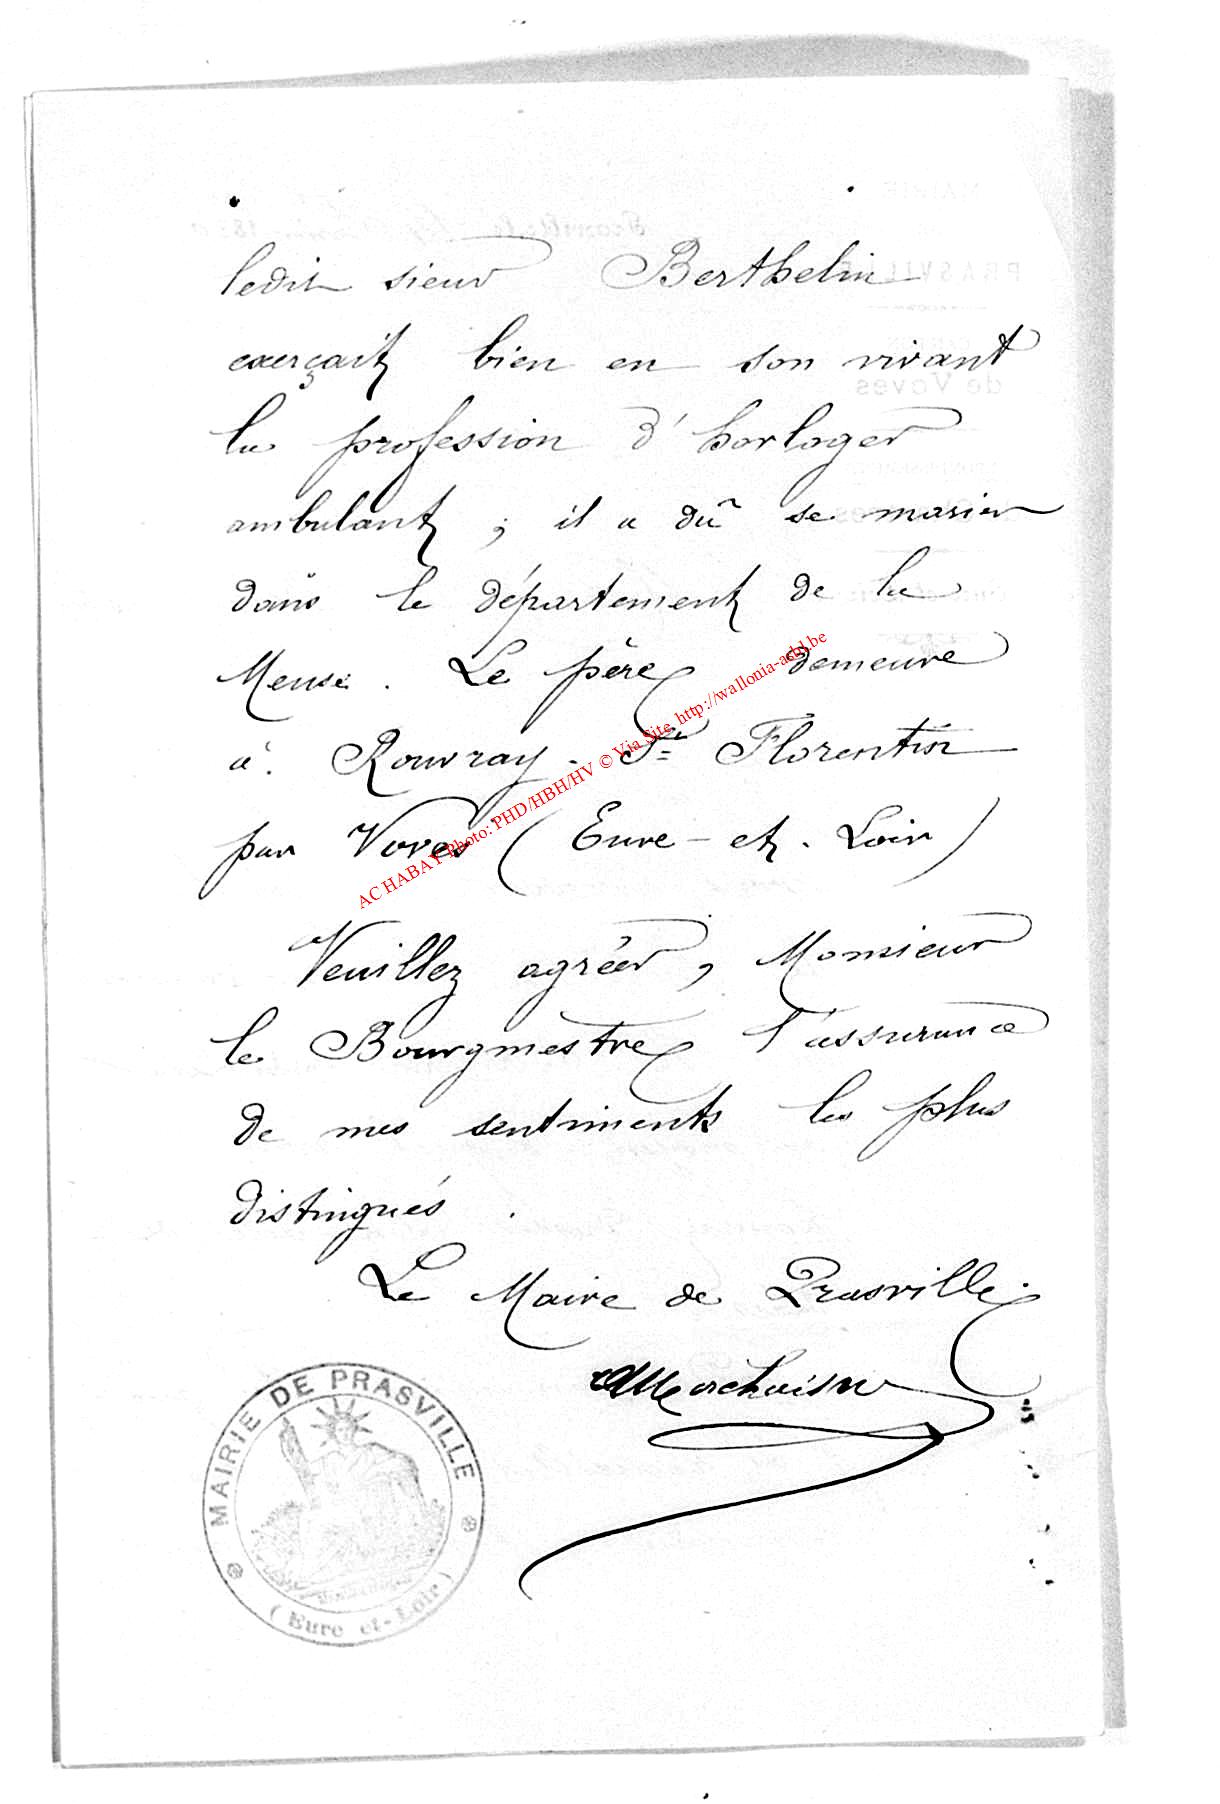 ledit sieur Berthelin
exerçait bien en son vivant
la profession d'horloger
ambulant ; il a dû se marier
dans le département de la
Meuse. Le père demeure
à Rouvray-St Florentin
par Voves (Eure-et-Loir)
Veuillez agréer, Monsieur
le Bourgmestre l'assurance
de mes sentiments les plus
distingués.
Le Maire de Prasville
MAIRIE DE PRASVILLE
(Eure et-Loir)
AC HABAY Photo: PHD/HBH/HV © Via Site http://wallonia-asbl.be